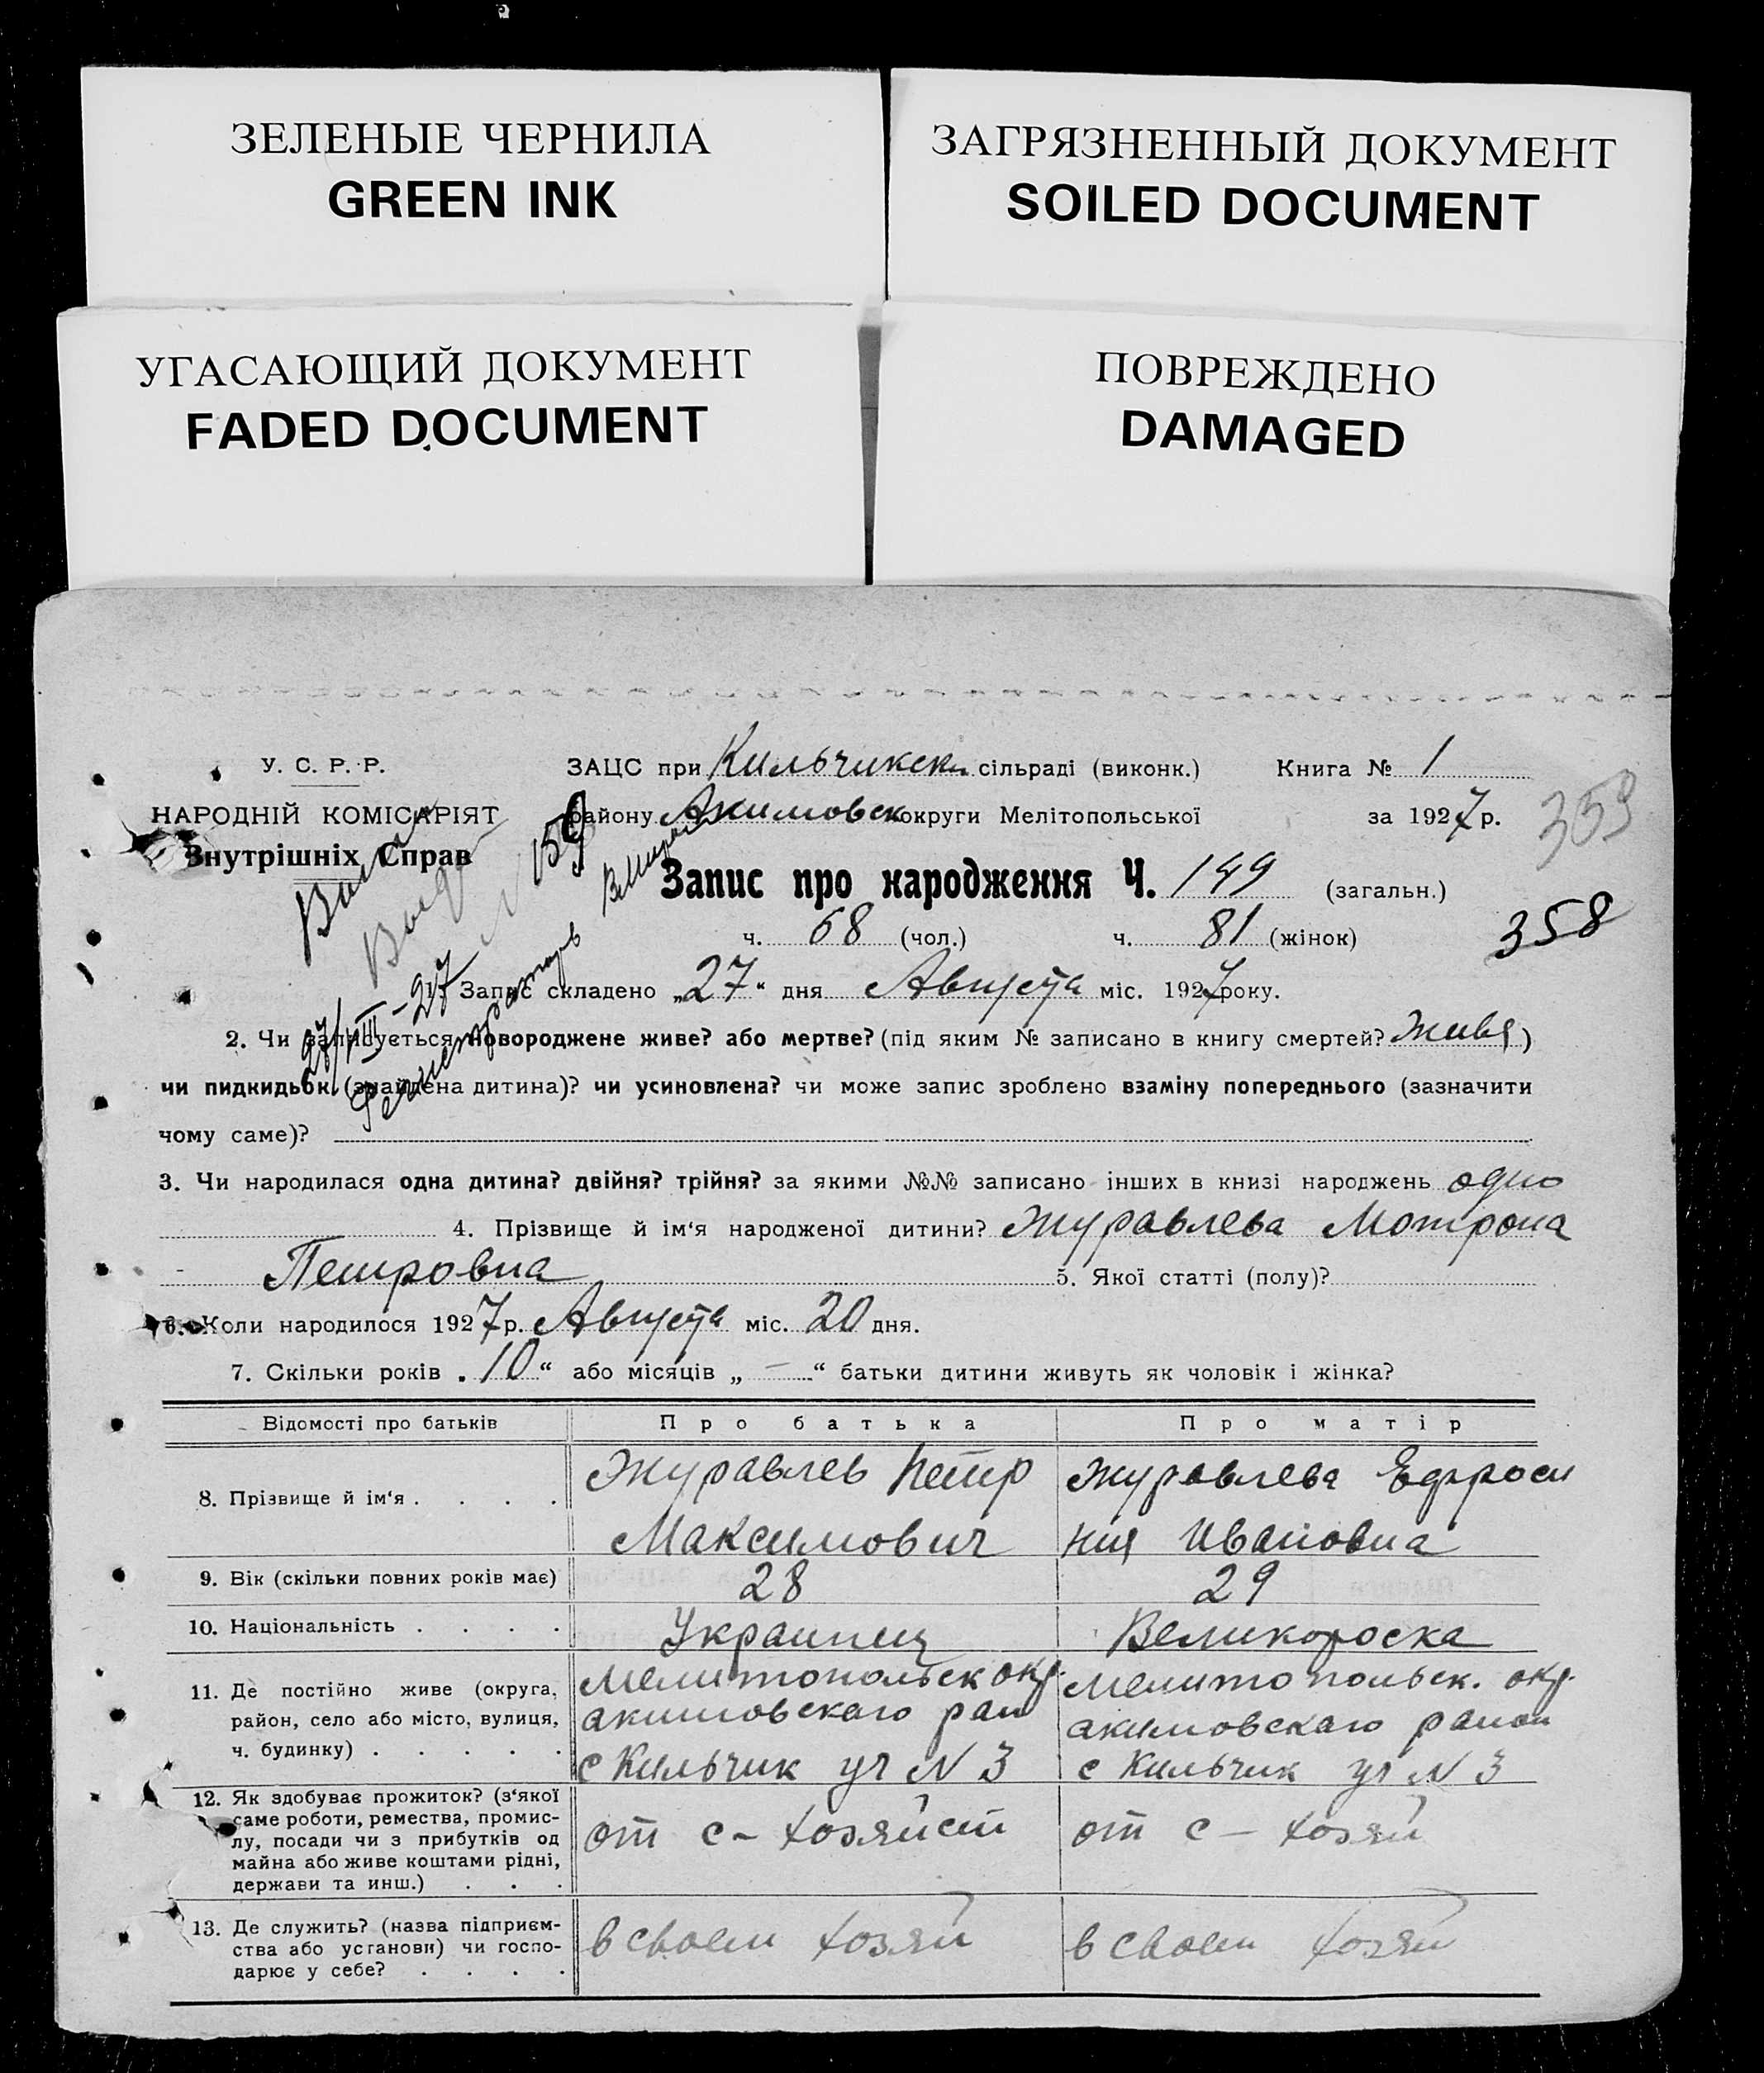 ЗЕЛЕНЫЕ ЧЕРНИЛА
GREEN INK
ЗАГРЯЗНЕННЫЙ ДОКУМЕНТ
SOILED DOCUMENT
УГАСАЮЩИЙ ДОКУМЕНТ
FADED DOCUMENT
ПОВРЕЖДЕНО
DAMAGED
У. С. Р. Р.
НАРОДНІЙ КОМІСАРІЯТ
Внутрішніх Справ
ЗАЦС при Кильчикск сільраді (виконк.) Книга № 1
району Акимовск округи Мелітопольської за 1927 р.
359
Запис про народження Ч. 149 (загальн.)
ч. 68 (чол.) ч. 81 (жінок)
358
Запис складено „27“ дня Августа міс. 1927 року.
27/VIII-27
2. Чи записується новороджене живе? або мертве? (під яким № записано в книгу смертей? живя)
чи пидкидьок (знайдена дитина)? чи усиновлена? чи може запис зроблено взаміну попереднього (зазначити
чому саме)?
3. Чи народилася одна дитина? двійня? трійня? за якими №№ записано інших в книзі народжень одно
4. Прізвище й ім‘я народженої дитини? Журавлева Мотрона
Петровна 5. Якої статті (полу)?
6. Коли народилося 1927 р. Августа міс. 20 дня.
7. Скільки років „10“ або місяців „—“ батьки дитини живуть як чоловік і жінка?
Відомості про батьків Про батька Про матір
8. Прізвище й ім‘я . . . . Журавлев Петр Журавлева Ефроси
Максимович ния Ивановна
9. Вік (скільки повних років має) 28 29
10. Національність . . . . Украинец Великороска
11. Де постійно живе (округа, район, село або місто, вулиця, ч. будинку) . . . . .
Мелитопольск окр. Мелитопольск. окр.
акимовскаго рай акимовскаго район
с Кильчик уч N 3 с Кильчик уч N 3
12. Як здобуває прожиток? (з‘якої саме роботи, ремества, промислу, посади чи з прибутків од майна або живе коштами рідні, держави та инш.) . . .
от с-хозяйст от с-хозяй
13. Де служить? (назва підприємства або установи) чи господарює у себе? . . . .
в своем хозяй в своем хозяй